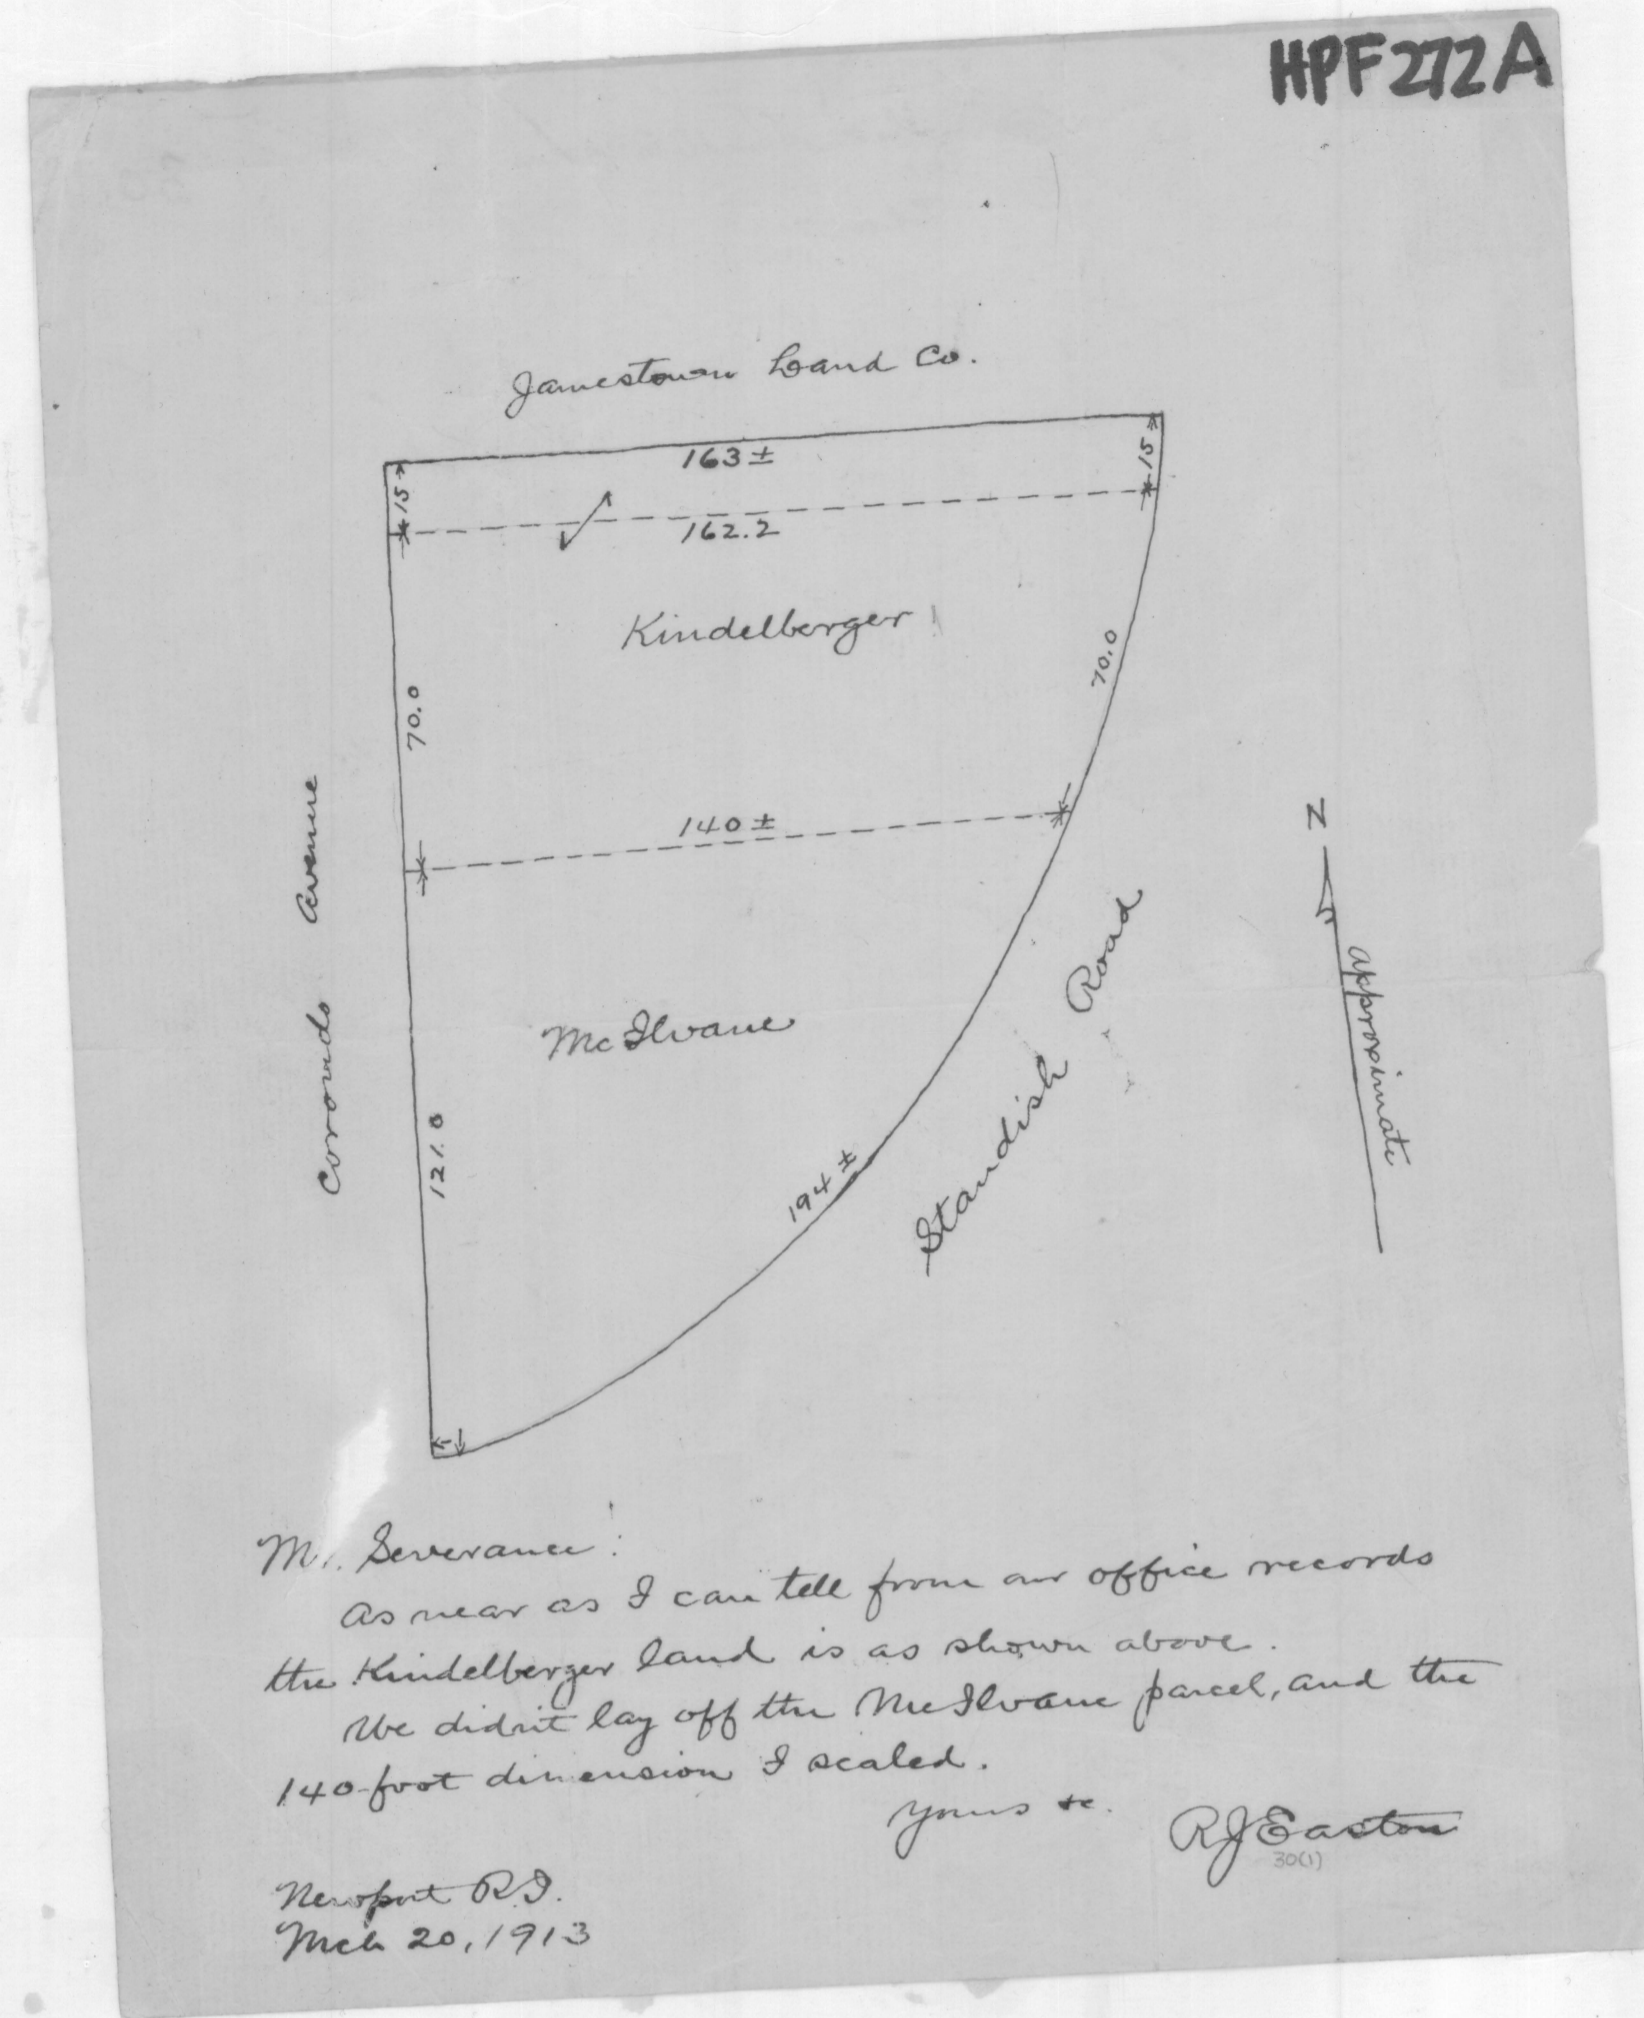 HPF272A
Jamestown Land Co.
163 ±
15
15
162.2
Kindelberger
70.0
70.0
140 ±
Coronado Avenue
N
approximate
McIlvane
Standish Road
121.0
194 ±
Mr. Severance:
As near as I can tell from our office records
the Kindelberger land is as shown above.
We didn't lay off the McIlvane parcel, and the
140-foot dimension I scaled.
Yours &c.
RJEaston
30(1)
Newport R.I.
Mch 20, 1913